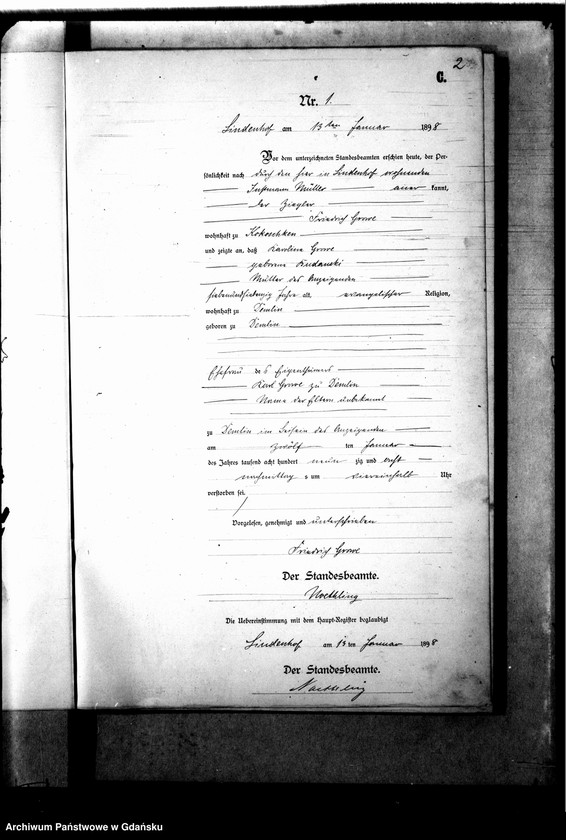 2
C.
Nr. 1.
Lindenhof am 13ten Januar 1898
Vor dem unterzeichneten Standesbeamten erschien heute, der Per-
sönlichkeit nach durch den hier in Lindenhof wohnenden
Instmann Müller aner kannt,
der Ziegler
Friedrich Growe
wohnhaft zu Kokoschken
und zeigte an, daß Karoline Growe
geborene
Mutter des Anzeigenden
siebenundsiebenzig Jahre alt, evangelischer Religion,
wohnhaft zu Demlin
geboren zu Demlin
Ehefrau des Eigenthümers
Karl Growe zu Demlin
Name der Eltern unbekannt
zu Demlin im Beisein des Anzeigenden
am zwölf ten Januar
des Jahres tausend acht hundert neun zig und acht
nachmittags um viereinhalb Uhr
verstorben sei.
Vorgelesen, genehmigt und unterschrieben
Friedrich Growe
Der Standesbeamte.
Die Uebereinstimmung mit dem Haupt-Register beglaubigt
Lindenhof am 13 ten Januar 1898
Der Standesbeamte.
Archiwum Państwowe w Gdańsku